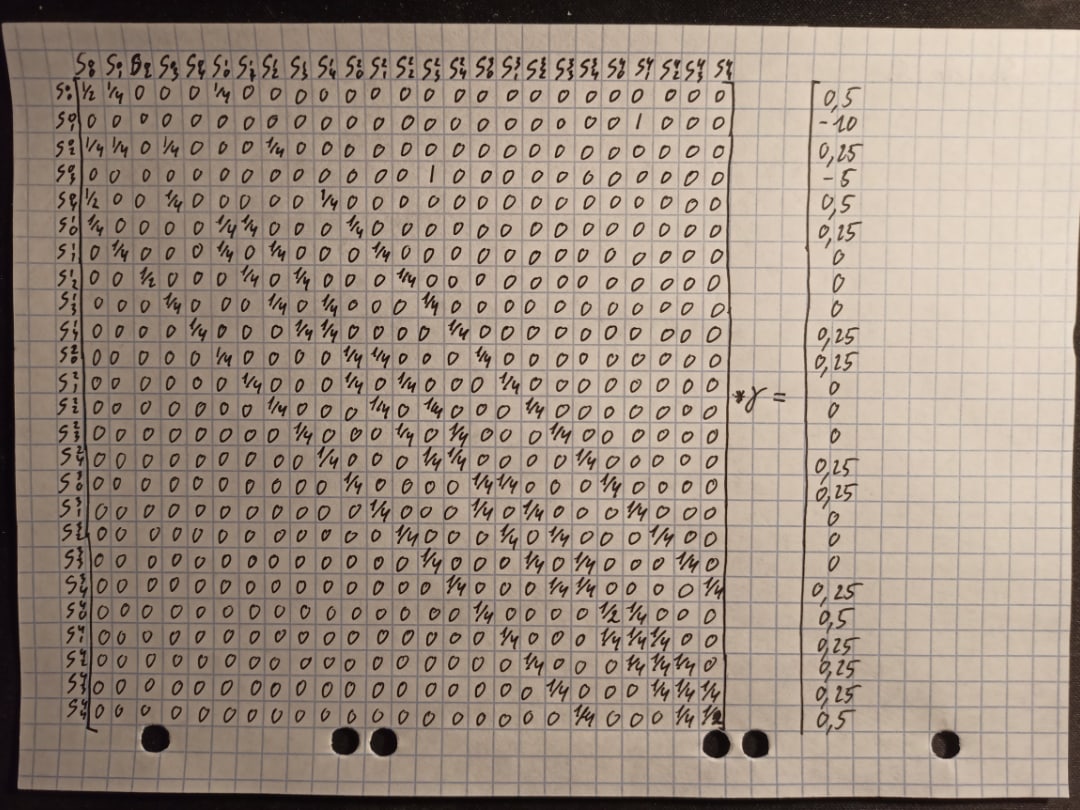 S⁰₀ S⁰₁ S⁰₂ S⁰₃ S⁰₄ S¹₀ S¹₁ S¹₂ S¹₃ S¹₄ S²₀ S²₁ S²₂ S²₃ S²₄ S³₀ S³₁ S³₂ S³₃ S³₄ S⁴₀ S⁴₁ S⁴₂ S⁴₃ S⁴₄
S⁰₀ 1/2 1/4 0 0 0 1/4 0 0 0 0 0 0 0 0 0 0 0 0 0 0 0 0 0 0 0 0,5
S⁰₁ 0 0 0 0 0 0 0 0 0 0 0 0 0 0 0 0 0 0 0 0 0 1 0 0 0 -10
S⁰₂ 1/4 1/4 0 1/4 0 0 0 1/4 0 0 0 0 0 0 0 0 0 0 0 0 0 0 0 0 0 0,25
S⁰₃ 0 0 0 0 0 0 0 0 0 0 0 0 0 1 0 0 0 0 0 0 0 0 0 0 0 -5
S⁰₄ 1/2 0 0 1/4 0 0 0 0 0 1/4 0 0 0 0 0 0 0 0 0 0 0 0 0 0 0 0,5
S¹₀ 1/4 0 0 0 0 1/4 1/4 0 0 0 1/4 0 0 0 0 0 0 0 0 0 0 0 0 0 0 0,25
S¹₁ 0 1/4 0 0 0 1/4 0 1/4 0 0 0 1/4 0 0 0 0 0 0 0 0 0 0 0 0 0 0
S¹₂ 0 0 1/2 0 0 0 1/4 0 1/4 0 0 0 1/4 0 0 0 0 0 0 0 0 0 0 0 0 0
S¹₃ 0 0 0 1/4 0 0 0 1/4 0 1/4 0 0 0 1/4 0 0 0 0 0 0 0 0 0 0 0 0
S¹₄ 0 0 0 0 1/4 0 0 0 1/4 1/4 0 0 0 0 1/4 0 0 0 0 0 0 0 0 0 0 0,25
S²₀ 0 0 0 0 0 1/4 0 0 0 0 1/4 1/4 0 0 0 1/4 0 0 0 0 0 0 0 0 0 0,25
S²₁ 0 0 0 0 0 0 1/4 0 0 0 1/4 0 1/4 0 0 0 1/4 0 0 0 0 0 0 0 0 *γ = 0
S²₂ 0 0 0 0 0 0 0 1/4 0 0 0 1/4 0 1/4 0 0 0 1/4 0 0 0 0 0 0 0 0
S²₃ 0 0 0 0 0 0 0 0 1/4 0 0 0 1/4 0 1/4 0 0 0 1/4 0 0 0 0 0 0 0
S²₄ 0 0 0 0 0 0 0 0 0 1/4 0 0 0 1/4 1/4 0 0 0 0 1/4 0 0 0 0 0 0,25
S³₀ 0 0 0 0 0 0 0 0 0 0 1/4 0 0 0 0 1/4 1/4 0 0 0 1/4 0 0 0 0 0,25
S³₁ 0 0 0 0 0 0 0 0 0 0 0 1/4 0 0 0 1/4 0 1/4 0 0 0 1/4 0 0 0 0
S³₂ 0 0 0 0 0 0 0 0 0 0 0 0 1/4 0 0 0 1/4 0 1/4 0 0 0 1/4 0 0 0
S³₃ 0 0 0 0 0 0 0 0 0 0 0 0 0 1/4 0 0 0 1/4 0 1/4 0 0 0 1/4 0 0
S³₄ 0 0 0 0 0 0 0 0 0 0 0 0 0 0 1/4 0 0 0 1/4 1/4 0 0 0 0 1/4 0,25
S⁴₀ 0 0 0 0 0 0 0 0 0 0 0 0 0 0 0 1/4 0 0 0 0 1/2 1/4 0 0 0 0,5
S⁴₁ 0 0 0 0 0 0 0 0 0 0 0 0 0 0 0 0 1/4 0 0 0 1/4 1/4 1/4 0 0 0,25
S⁴₂ 0 0 0 0 0 0 0 0 0 0 0 0 0 0 0 0 0 1/4 0 0 0 1/4 1/4 1/4 0 0,25
S⁴₃ 0 0 0 0 0 0 0 0 0 0 0 0 0 0 0 0 0 0 1/4 0 0 0 1/4 1/4 1/4 0,25
S⁴₄ 0 0 0 0 0 0 0 0 0 0 0 0 0 0 0 0 0 0 0 1/4 0 0 0 1/4 1/2 0,5